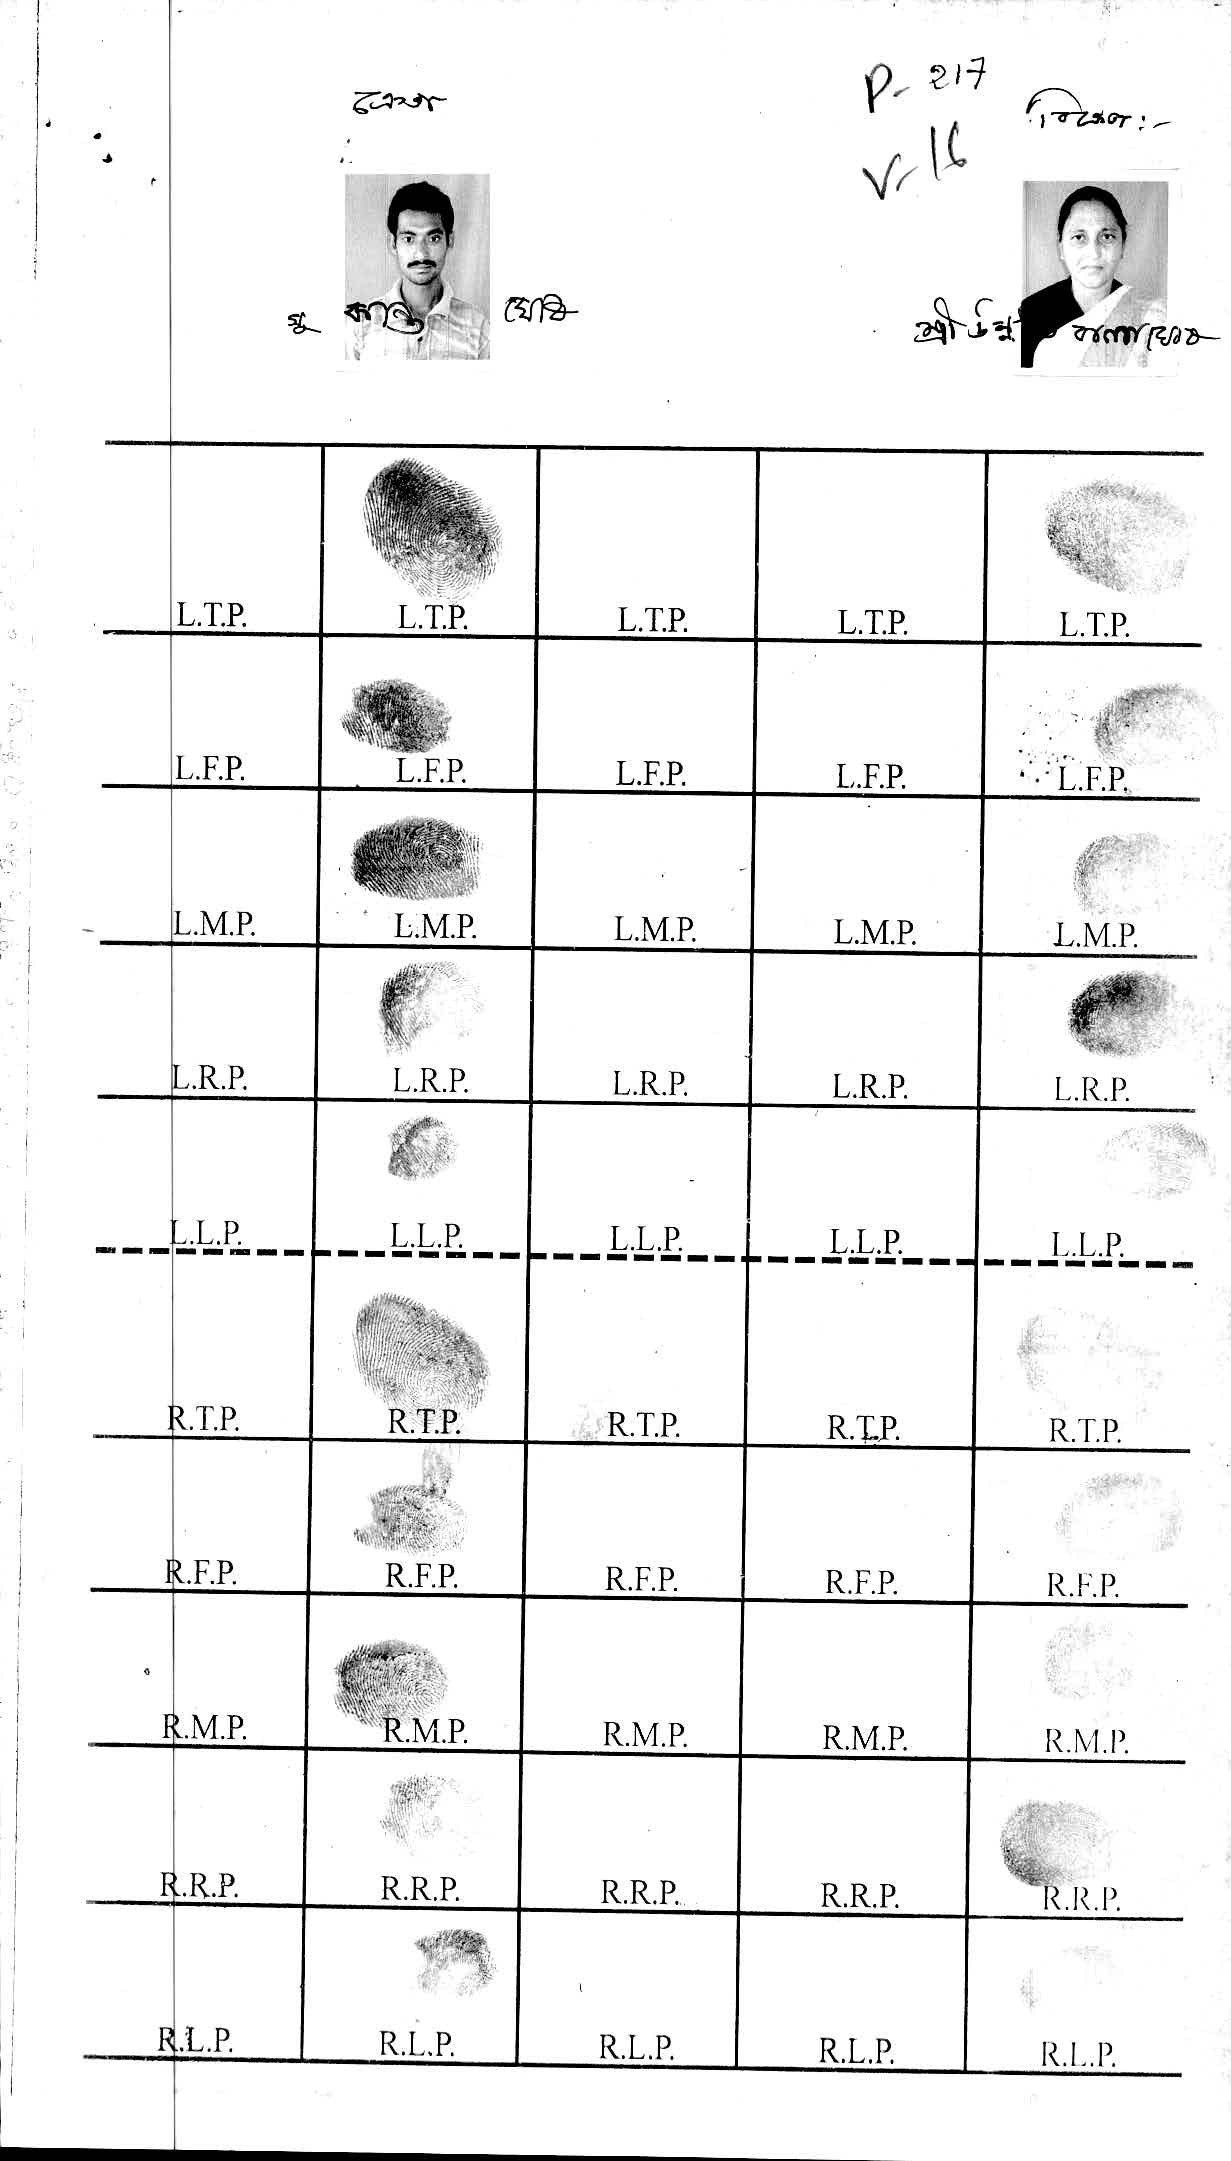 P- 217
V- 16
L.T.P. L.T.P. L.T.P. L.T.P. L.T.P.
L.F.P. L.F.P. L.F.P. L.F.P. L.F.P.
L.M.P. L.M.P. L.M.P. L.M.P. L.M.P.
L.R.P. L.R.P. L.R.P. L.R.P. L.R.P.
L.L.P. L.L.P. L.L.P. L.L.P. L.L.P.
R.T.P. R.T.P. R.T.P. R.T.P. R.T.P.
R.F.P. R.F.P. R.F.P. R.F.P. R.F.P.
R.M.P. R.M.P. R.M.P. R.M.P. R.M.P.
R.R.P. R.R.P. R.R.P. R.R.P. R.R.P.
R.L.P. R.L.P. R.L.P. R.L.P. R.L.P.